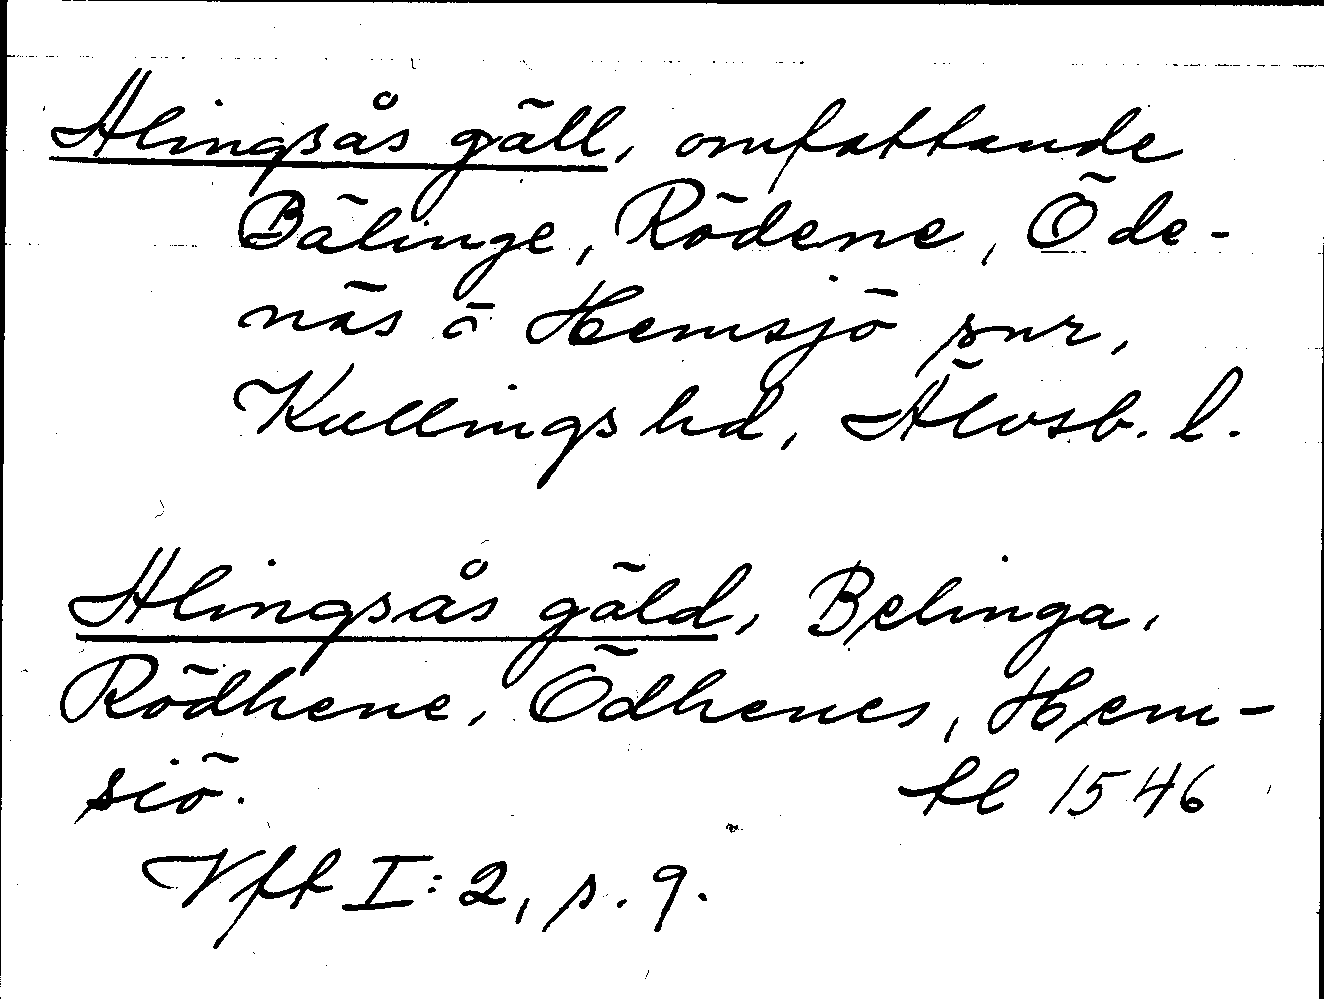 Alingsås gäll, omfattande
Bälinge, Rödene, Öde-
näs o Hemsjö snr,
Kullings hd, Älvsb. l.
Alingsås gäld, Belinga,
Rödhene, Ödhenes, Hem-
siö. tl 1546
Vft I:2, s. 9.